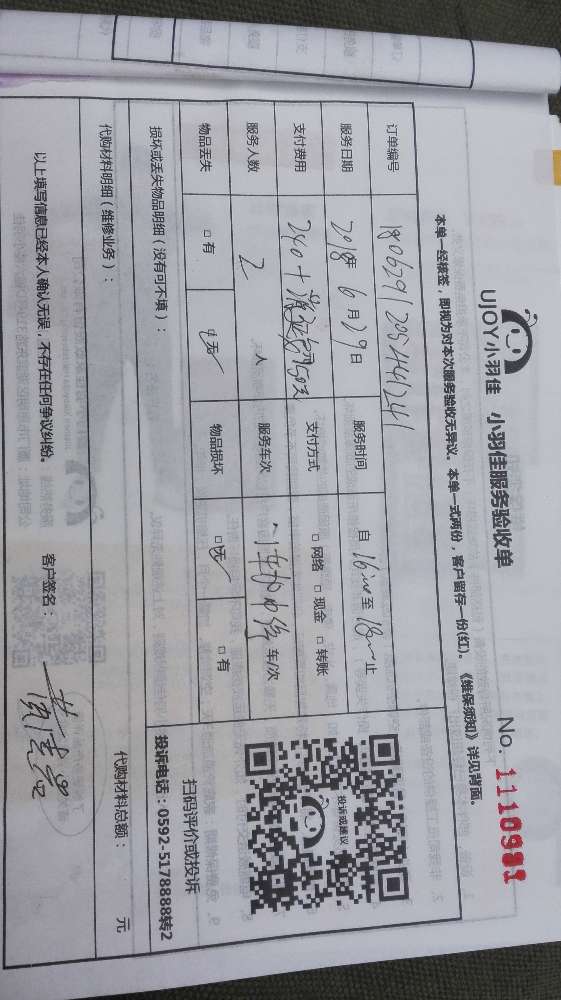 UJOY小羽佳 小羽佳服务验收单
No. 1110981
本单一经核签，即视为对本次服务验收无异议。本单一式两份，客户留存一份(红)。《维保须知》详见背面。
订单编号 1806291205441241
服务日期 2018年 6月29日 服务时间 自 16:00 至 18:00 止
支付费用 240+ 支付方式 □网络 □现金 □转账
服务人数 2 人 服务车次 车/次
物品丢失 □有 □无 物品损坏 □无 □有
损坏或丢失物品明细（没有可不填）：
投诉或建议
扫码评价或投诉
投诉电话：0592-5178888转2
代购材料明细（维修业务）： 代购材料总额： 元
以上填写信息已经本人确认无误，不存在任何争议纠纷。 客户签名：